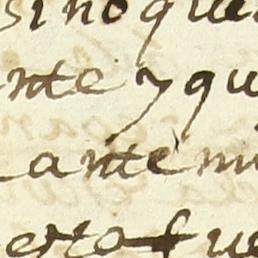 sino que
nte y qu
ante mi
esto fue